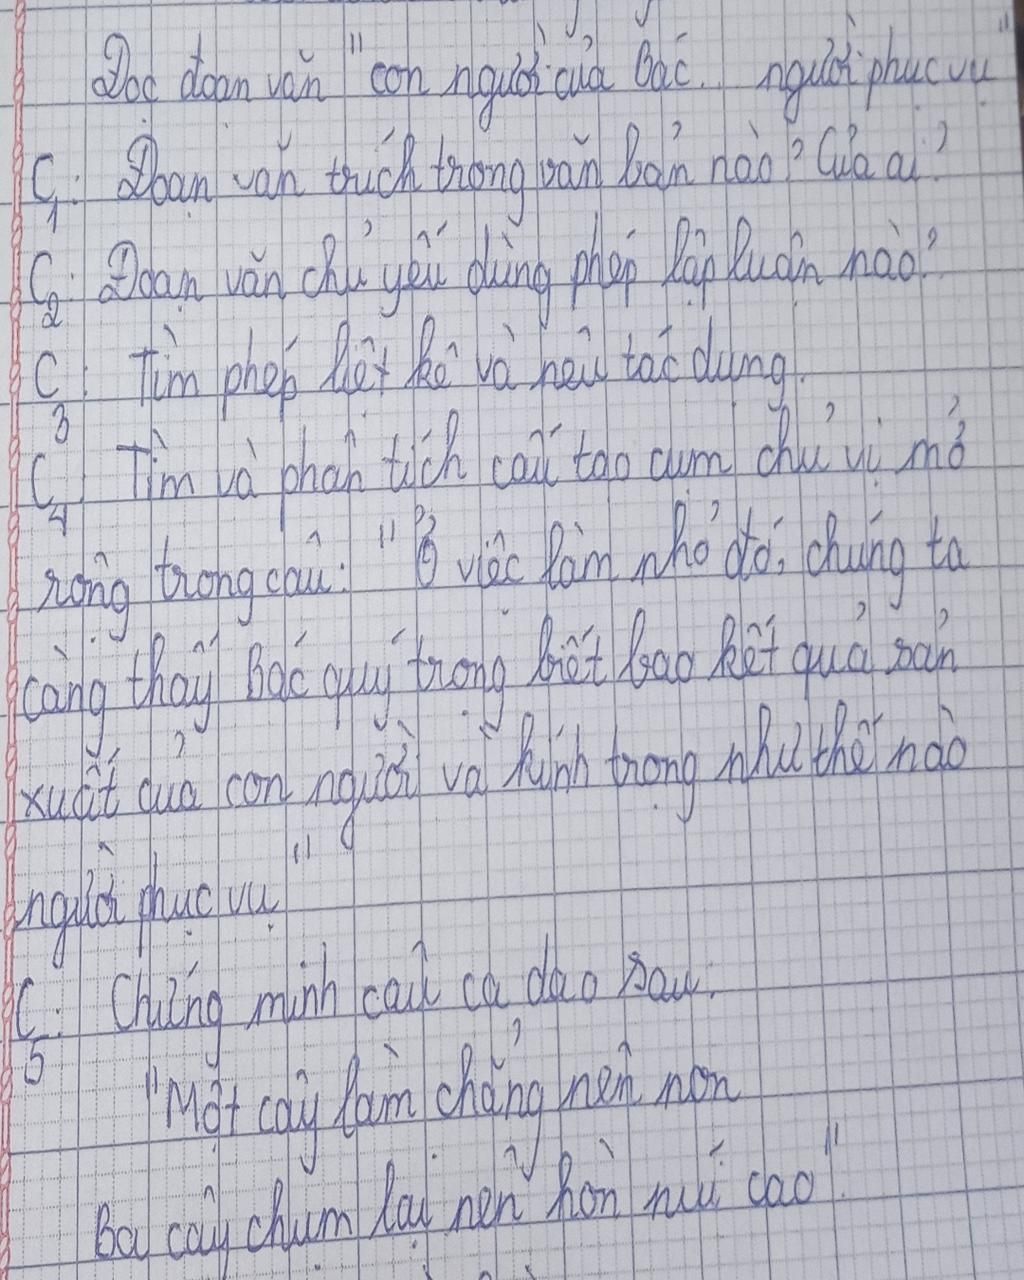 Đọc đoạn văn "con người của Bác... người phục vụ"
C1: Đoạn văn trích trong văn bản nào? Của ai?
C2: Đoạn văn chủ yếu dùng phép lập luận nào?
C3: Tìm phép liệt kê và nêu tác dụng.
C4: Tìm và phân tích cấu tạo cụm chủ vị mở
rộng trong câu: "Ở việc làm nhỏ đó, chúng ta
càng thấy Bác quý trọng biết bao kết quả sản
xuất của con người và kính trọng như thế nào
người phục vụ"
C5: Chứng minh câu ca dao sau:
"Một cây làm chẳng nên non
Ba cây chụm lại nên hòn núi cao".